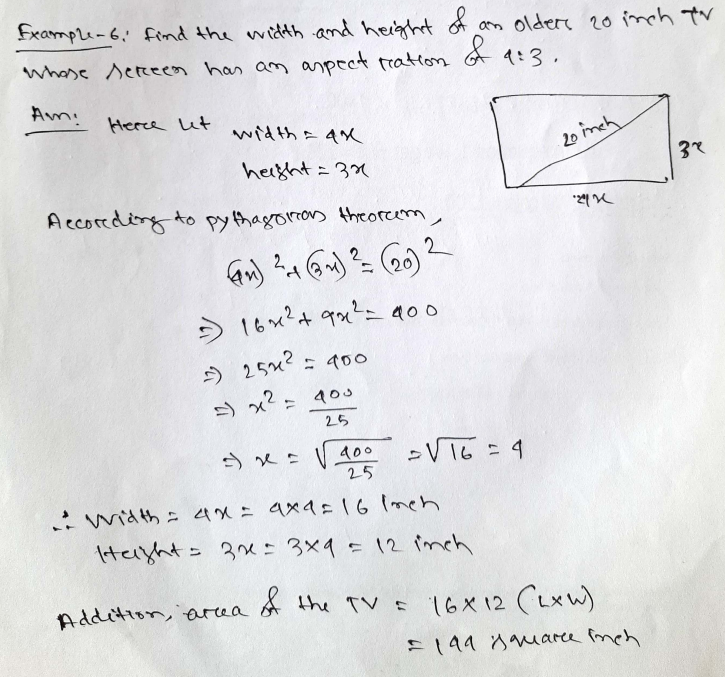 Example-6: Find the width and height of an older 20 inch TV
whose screen has an aspect ration of 4:3.
Ans: Here let width = 4x
height = 3x
20 inch
3x
4x
According to pythagorian theorem,
(4x)² + (3x)² = (20)²
⇒ 16x² + 9x² = 400
⇒ 25x² = 400
⇒ x² = 400/25
⇒ x = √400/25 = √16 = 4
∴ Width = 4x = 4x4 = 16 inch
Height = 3x = 3x4 = 12 inch
Addition, area of the TV = 16 x 12 (LxW)
= 144 square inch